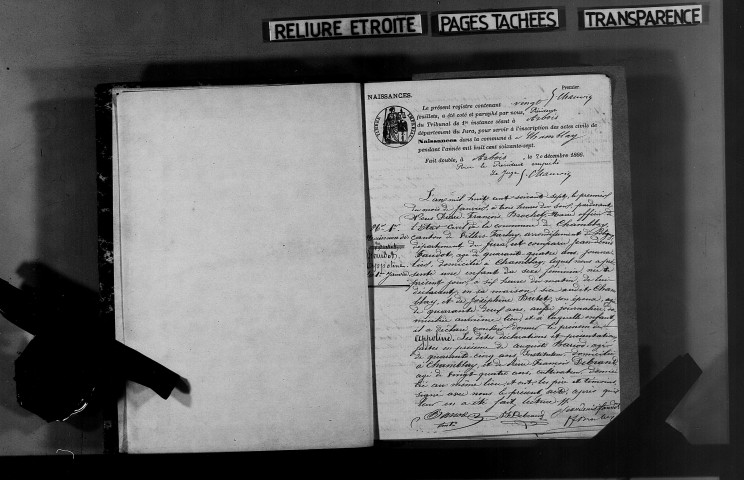 RELIURE ETROITE PAGES TACHÉES TRANSPARENCE
Premier
NAISSANCES.
Le présent registre contenant vingt
feuillets, a été coté et paraphé par nous,
du Tribunal de 1re instance séant à Arbois
département du Jura, pour servir à l'inscription des actes civils de
Naissances dans la commune d Chamblay
pendant l'année mil huit cent soixante-sept.
Fait double, à Arbois, le décembre 1866.
Pour le Président empêché
Le Juge
L'an mil huit cent soixante sept, le premier
du mois de Janvier, à trois heures du soir, pardevant
Nous Pierre François Brochet, Maire officier de
l'Etat Civil de la commune de Chamblay,
canton de Villers Farlay, arrondissement de
département du Jura, est comparu Jean Denis
Faudot, agé de quarante quatre ans,
domicilié à Chamblay, lequel nous a pré
senté une enfant du sexe féminin, née le
présent jour, à six heures du matin, de lui
déclarant, en sa maison, sise audit Cham
blay, et de Joséphine son épouse, agée
de quarante deux ans, journalière,
même lieu, et à laquelle enfant
il a déclaré vouloir donner le prénom de
Appoline. Les dites déclarations et présentation
faites en présence de Auguste agé
de quarante cinq ans, instituteur, domicilié
à Chamblay, et de Pierre François Debrand
agé de vingt quatre ans, cultivateur, domici
lié au même lieu, et ont, les père et témoins
signé avec nous le présent acte, après qu'il
leur en a été fait lecture.
No 1er
Naissance de
Faudot
Appoline
1er Janvier
Debrand